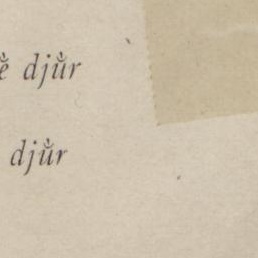 djŭ̀r
djŭ̀r